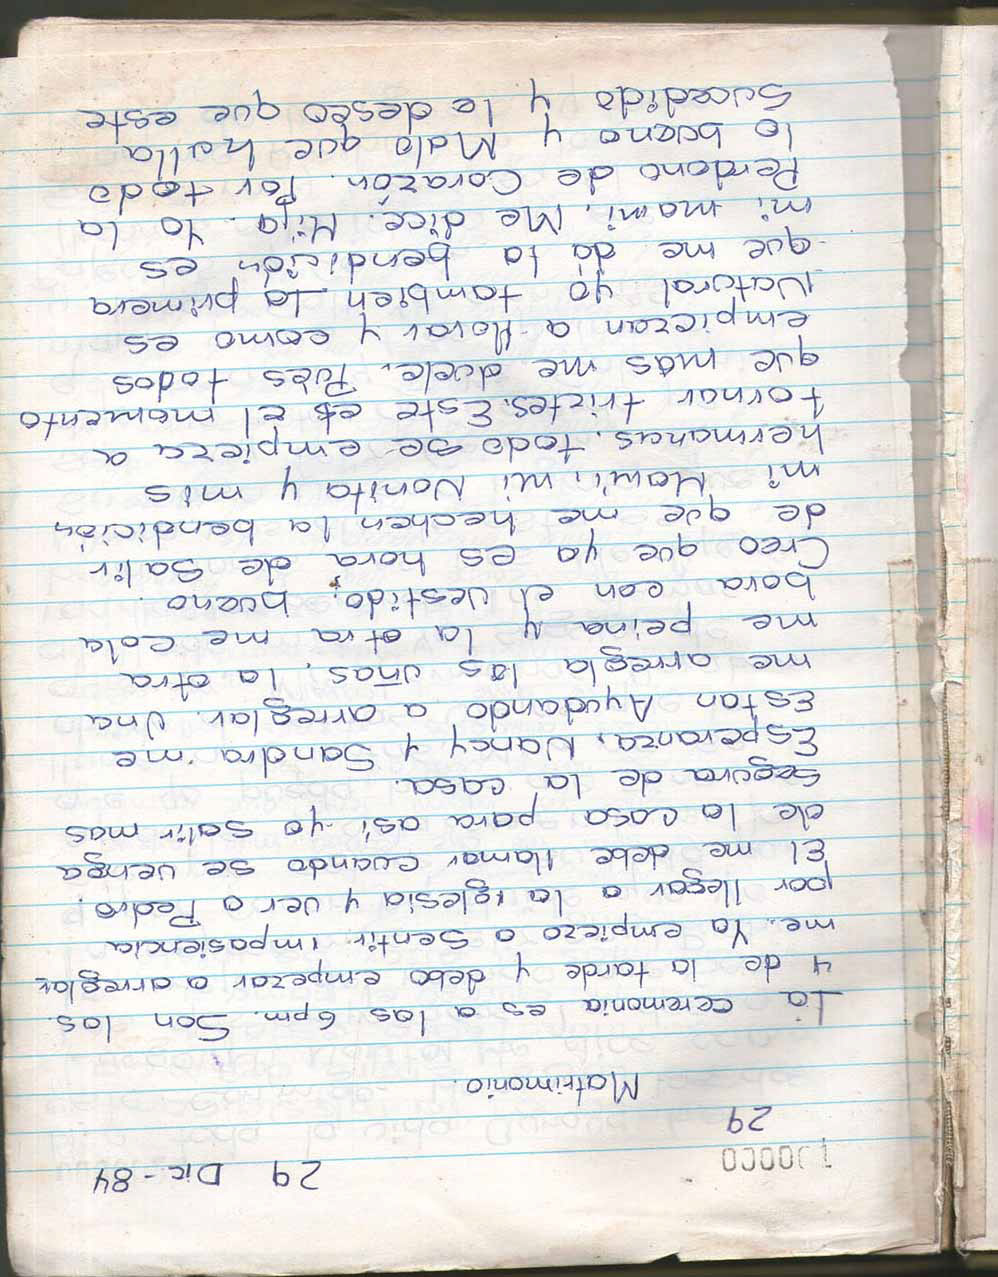 100000
29 Dic-84
29
Matrimonio.
La ceremonia es a las 6pm. Son las
4 de la tarde y debo empezar a arreglar
me. Ya empiezo a sentir impasiencia
por llegar a la iglesia y ver a Pedro!
El me debe llamar cuando se venga
de la casa para asi yo salir mas
segura de la casa.
Esperanza, Nancy y Sandra me
Estan Ayudando a arreglar. Una
me arregla las uñas, la otra
me peina y la otra me cola
bora con el vestido; bueno.
Creo que ya es hora de salir
de que me hechen la bendición
mi Mami, mi Nonita y mis
hermanas. todo se empieza a
tornar triztes. Este es El momento
que mas me duele. Pues todos
empiezan a llorar y como es
Natural yo tambien. La primera
que me da la bendición es
mi mami. Me dice: Hija. Yo la
Perdono de Corazón. Por todo
lo bueno y Malo que halla
Sucedido y le deseo que este